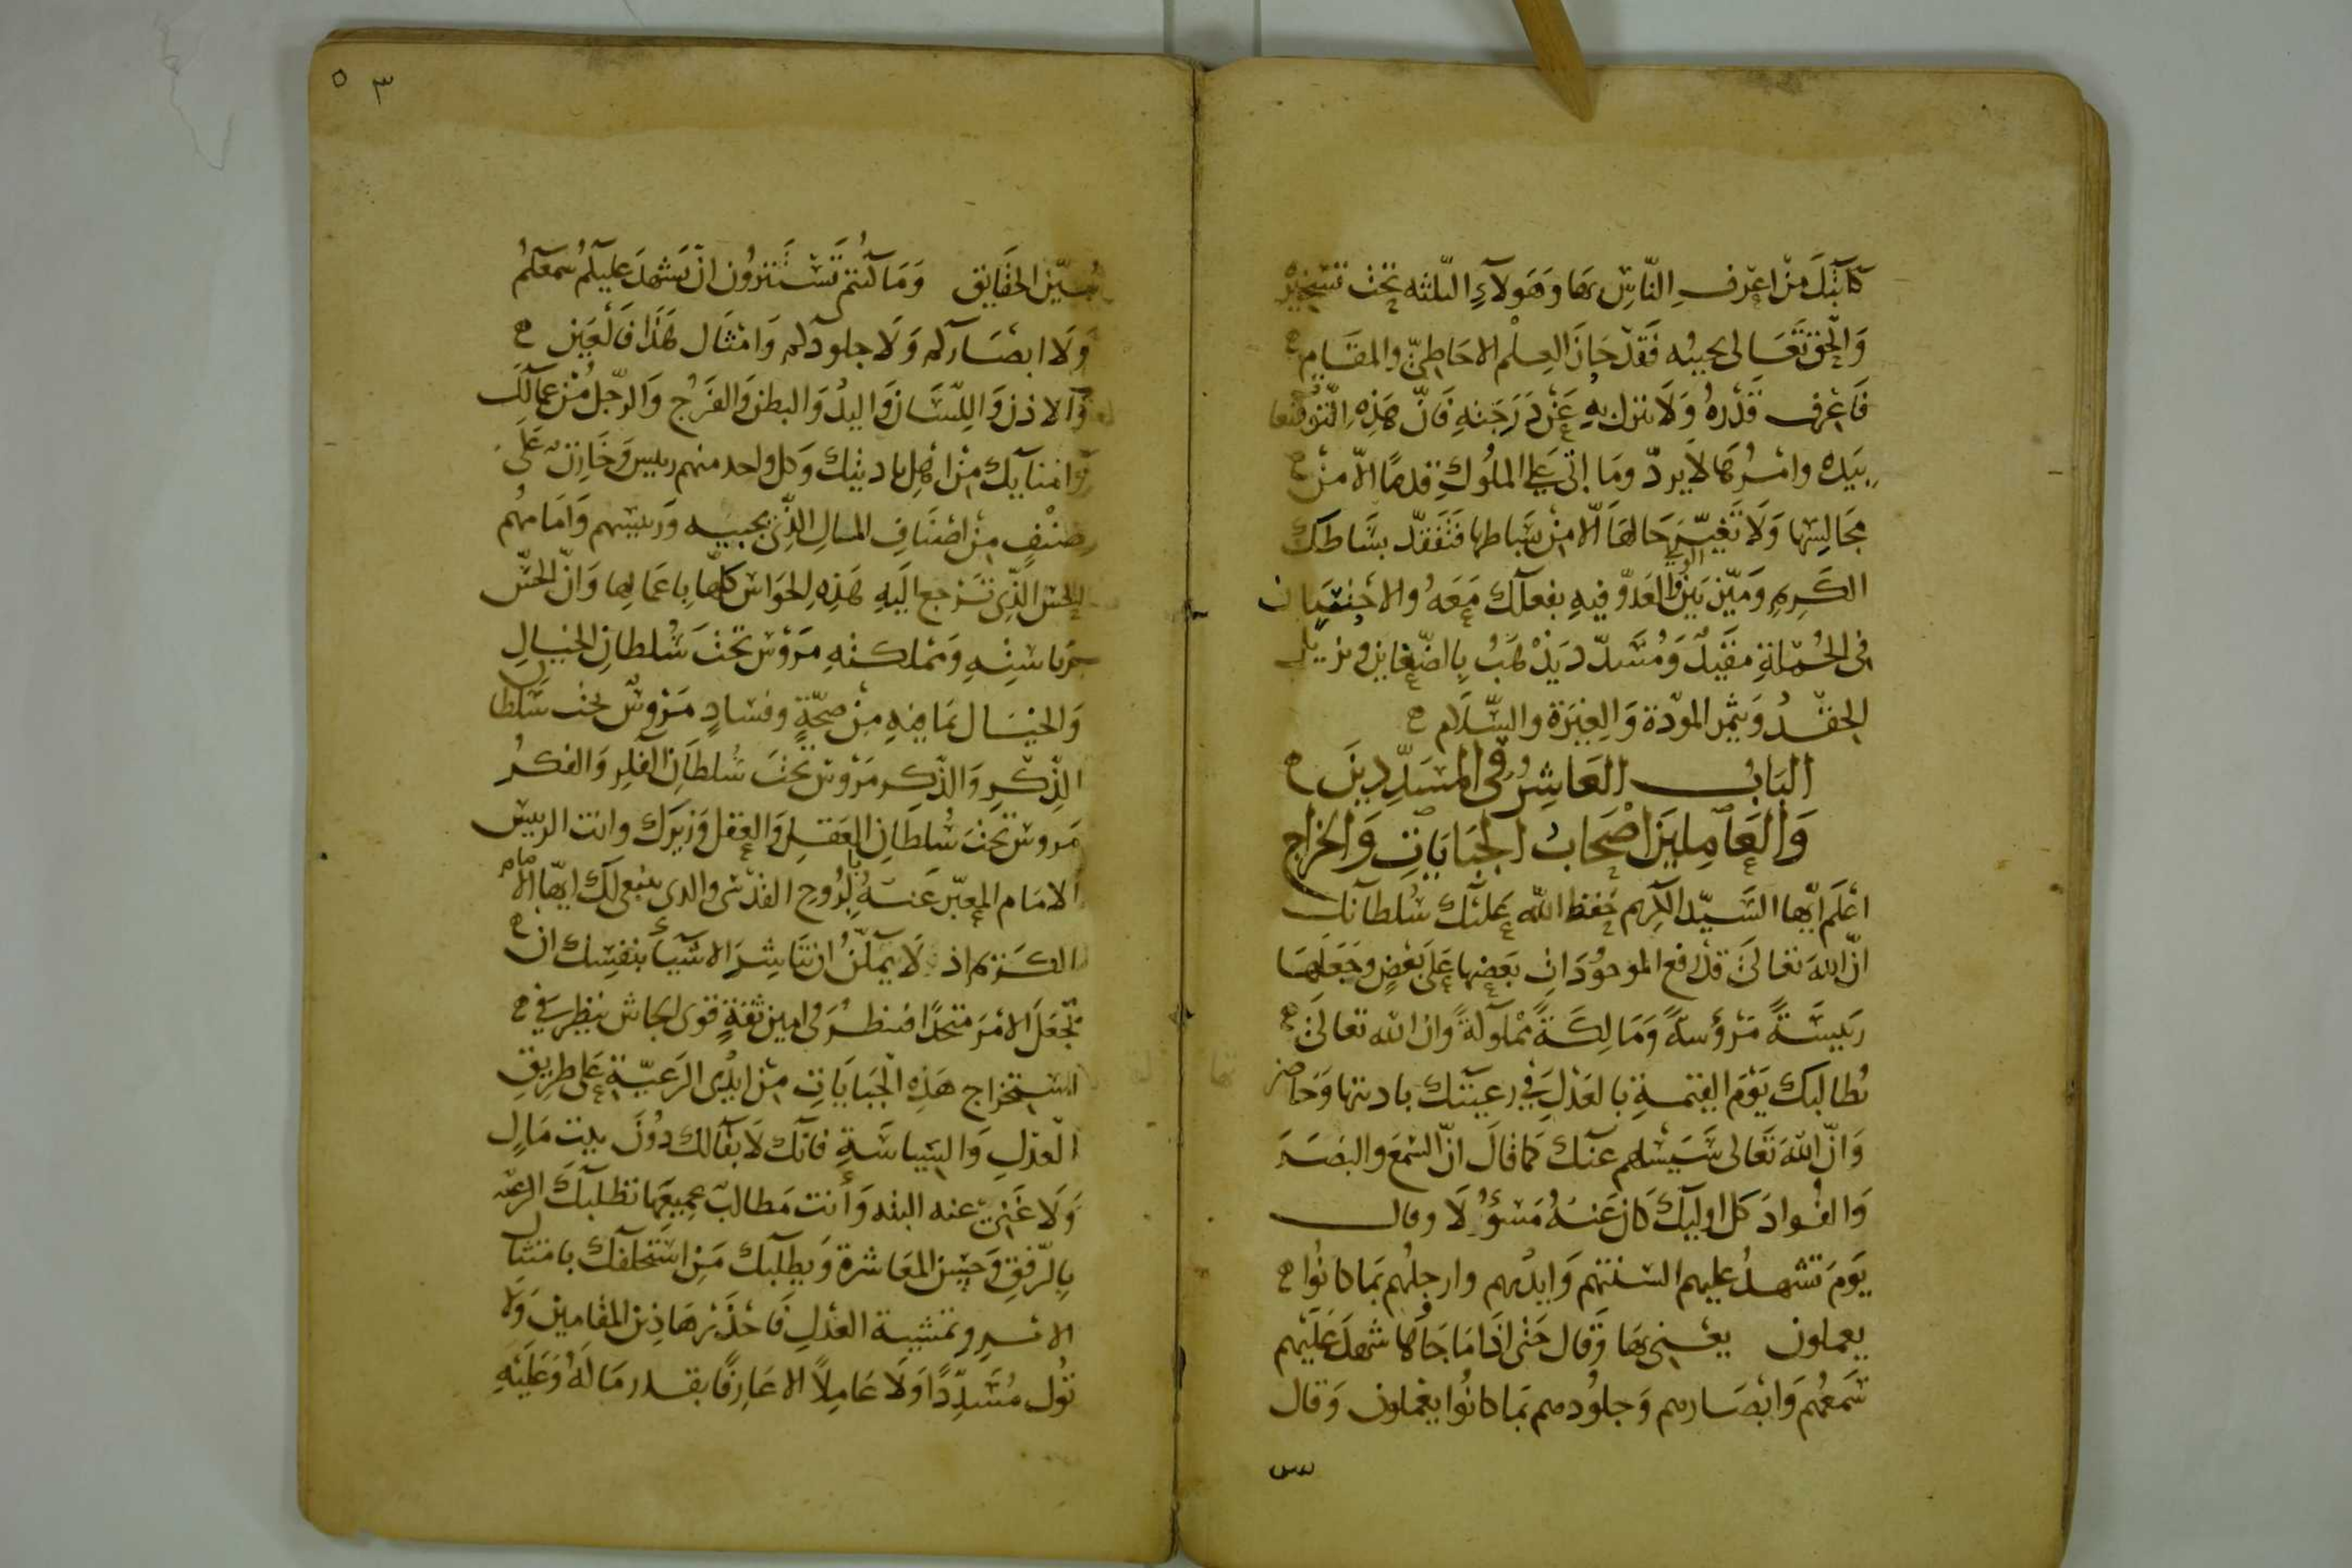 كاتبك من اعرف الناس بها وهولآء الثلثه تحت تسخير
والحق تعالى يحييه فقد حاز العلم الاحاطىّ والمقام
فاعرف قدره ولا تنزل به عن درجته فانّ هذه
بيده وامرها لا يردّ وما اتى على الملوك قدما الاّ من
مجالسها ولا تغيّر حالها الاّ من بساطها فتفقّد بساطك
الكريم وميّز بين الولى والعدوّ فيه بفعلك معه والاحسان
فى الجملة مقيد ومسدّد يذهب بالضّغاين ويزيل
الحقد ويثمر المودة والغيرة والسّلام
الباب العاشر فى المسدّدين
والعاملين اصحاب الجبايات والخراج
اعلم ايّها السّيّد الكريم حفظ الله عليك سلطانك
انّ الله تعالى قد رفع الموجودات بعضها على بعض وجعلها
رييسة مرؤسة ومالكة مملوكة وان الله تعالى
يطالبك يوم القيمة بالعدل فى رعيتك باديتها وحاضر
وانّ الله تعالى سيسلهم عنك كما قال انّ السّمع والبصر
والفواد كل اوليك كان عنه مسؤلا وقال
يوم تشهد عليهم السنتهم وايديهم وارجلهم بما كانوا
يعملون يعنى بها وقال حتى اذا ما جاؤها شهد عليهم
سمعهم وابصارهم وجلودهم بما كانوا يعملون وقال
٣٥
الحقايق وما كنتم تستترون ان يشهد عليكم سمعكم
ولا ابصاركم ولا جلودكم وامثال هذا فالعين
والاذن واللسان واليد والبطن والفرج والرّجل من عمالك
وامنايك من اهل باديتك وكل واحد منهم رييس وخازن على
صنف من اصناف المال الذى يجبيه ورييسهم وامامهم
الحس الذى ترجع اليه هذه الحواس كلّها باعمالها وانّ الحسّ
برياسته ومملكته مروس تحت سلطان الخيال
والخيال بما فيه من صحّة وفساد مروس تحت سلطان
الذّكر والذّكر مروس تحت سلطان الفكر والفكر
مروس تحت سلطان العقل والعقل وزيرك وانت الرييس
الامام المعبّر عنه بالرّوح القدسى والدى ينبغى لك ايّها الامام
الكريم اذ لا يمكن ان تباشر الاشياء بنفسك ان
تجعل الامر متحدا فتنظر فى امين ثقة قوى الجاش ينظر فى
استخراج هذه الجبايات من ايدى الرعيّة على طريق
العدل والسياسة فانك لا بقالك دون بيت مال
ولا غنى عنه البته وأنت مطالب بجميعها تطلبك الرعيه
بالرّفق وحسن المعاشرة ويطلبك من استخلفك بامتثال
الامر وتمشية العدل فاحذر هاذين المقامين ولا
تول مسدّدا ولا عاملا الا عارفا بقدر ما له وعليه